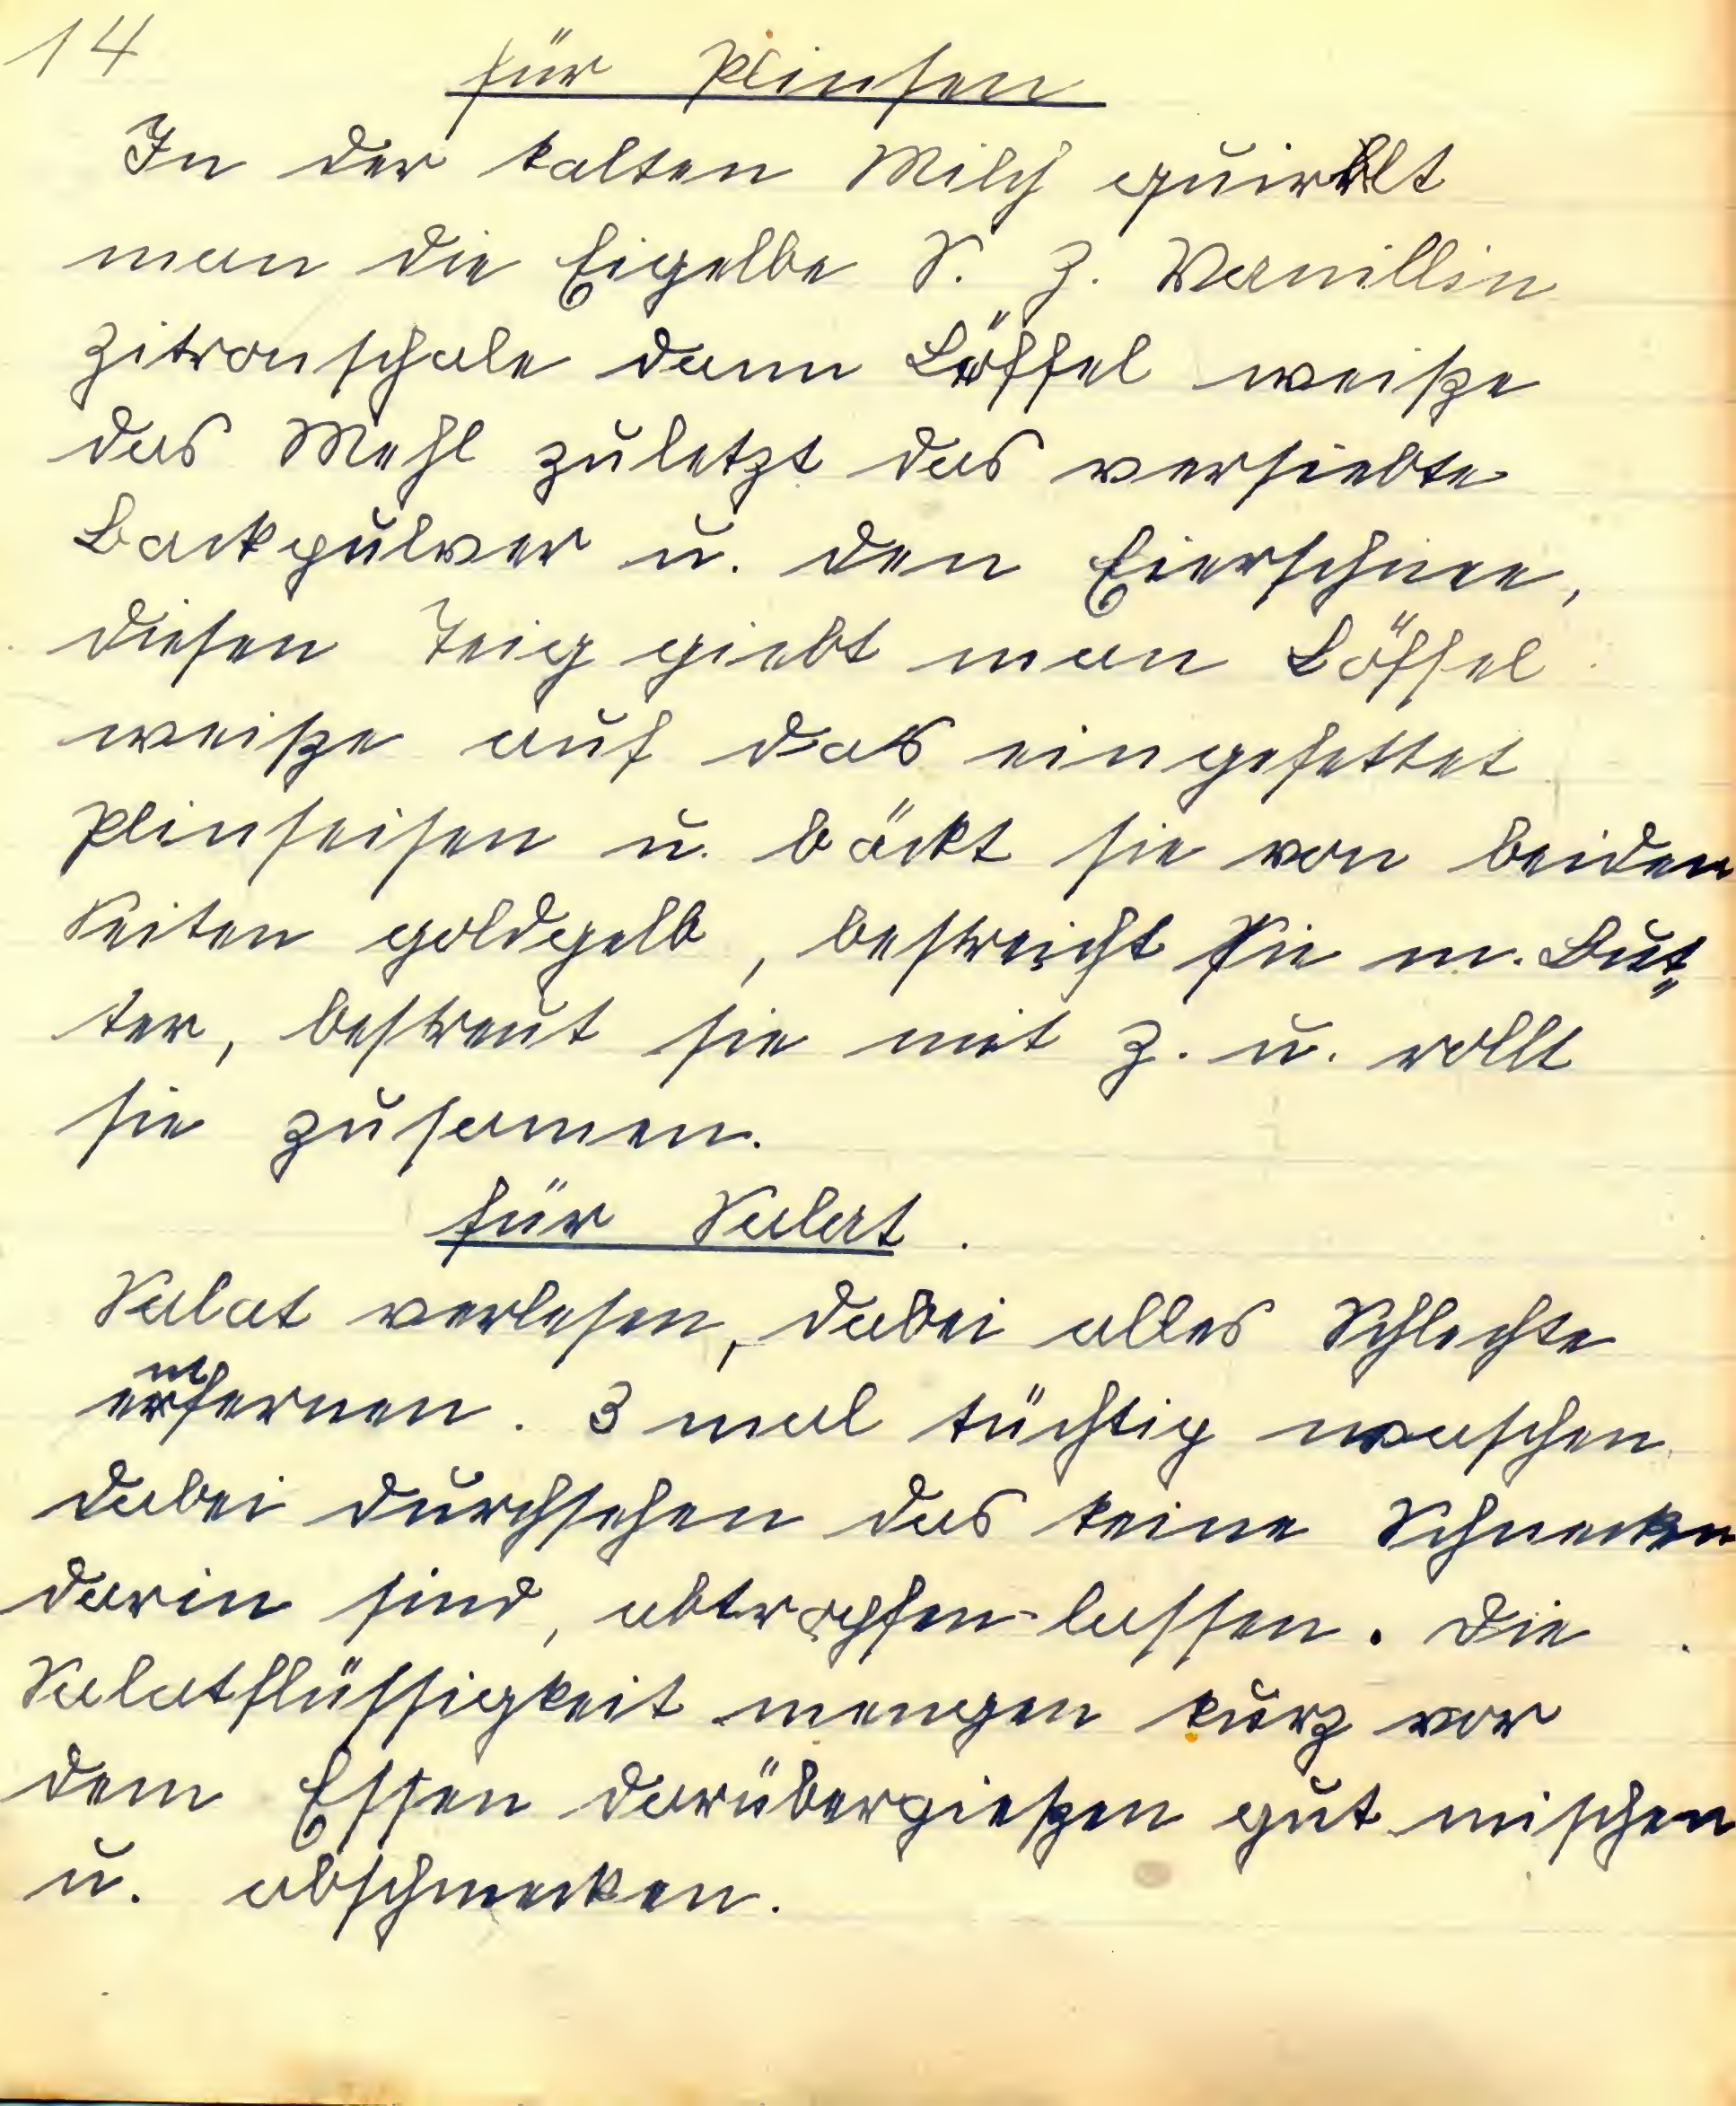 14
für Plinsen
In der kalten Milch quirlt
man die Eigelbe S. Z. Vanillin
Zitronschale dann Löffel weiße
das Mehl zuletzt das versiebte
Backpulver u. den Eierschnee,
diesen Teig giebt man Löffel
weiße auf das eingefettet
Plinseisen u. bäckt sie von beiden
Seiten goldgelb, bestreicht sie m. But„
ter, bestreut sie mit Z. u. rollt
sie zusamen.
für Salat.
Salat verlesen, dabei alles Schlechte
entfernen. 3 mal tüchtig waschen
dabei durchsehen das keine Schnecken
darin sind, abtropfen-lassen. Die
Salatflüssigkeit mengen kurz vor
dem Essen darübergießen gut mischen
u. abschmecken.